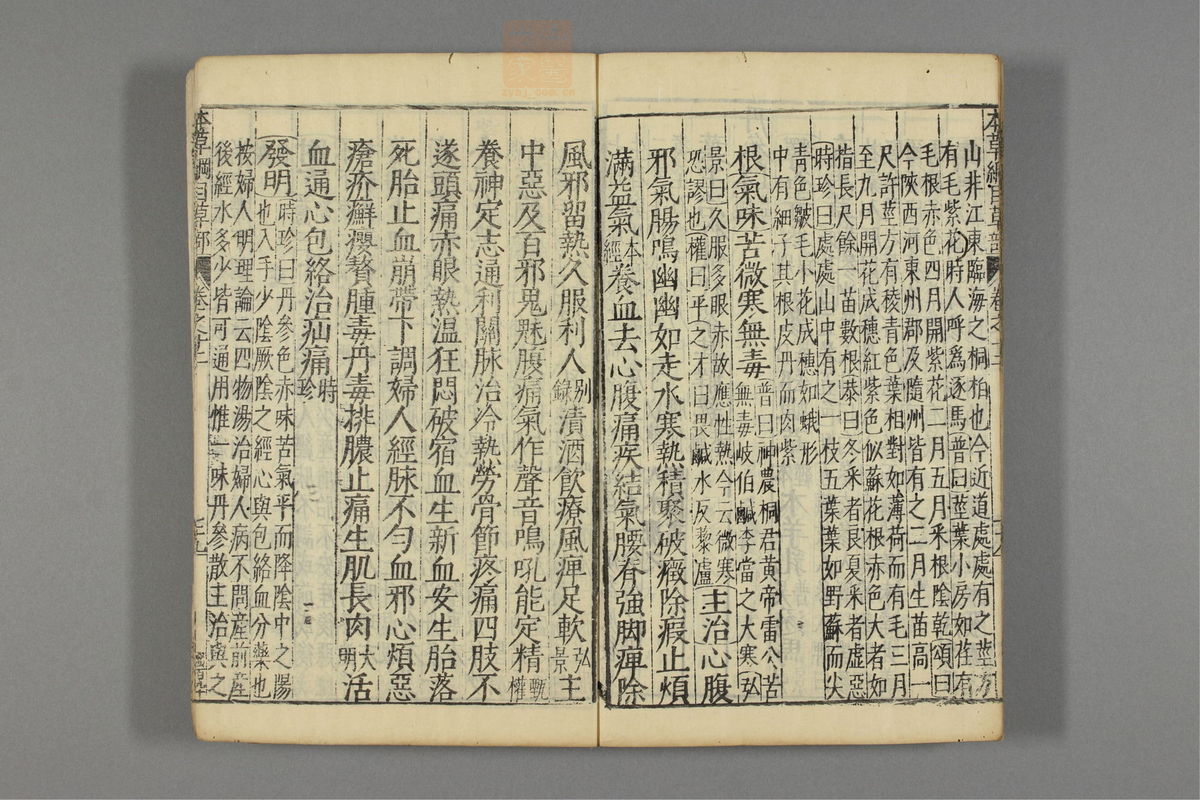 本草綱目草部 卷之十二
山井江東臨海之桐柏也今近道處處有之莖方
有毛紫花時人呼爲逐馬普曰莖葉小房如荏有
毛根赤色四月開紫花二月五月采根陰乾頌曰
今陝西河東州郡及隨州皆有之二月生苗高一
尺許莖方有稜青色葉相對如薄荷而有毛三月
至九月開花成穗紅紫色似蘇花根赤色大者如
指長尺餘一苗數根恭曰冬采者良夏采者虛惡
時珍曰處處山中有之一枝五葉葉如野蘇而尖
靑色皺毛小花成穗如蛾形
中有細子其根皮丹而肉紫
根氣味苦微寒無毒普曰神農桐君黃帝雷公苦
無毒岐伯鹹李當之大寒弘
景曰久服多眼赤故應性熱今云微寒
恐謬也權曰平之才曰畏鹹水反藜蘆主治心腹
邪氣腸鳴幽幽如走水寒熱積聚破癥除瘕止煩
滿益氣本經養血去心腹痛疾結氣腰脊強脚痺除
風邪留熱久服利人别録漬酒飮療風痺足軟弘景主
中惡及百邪鬼魅腹痛氣作聲音鳴吼能定精甄權
養神定志通利關脉治冷熱勞骨節疼痛四肢不
遂頭痛赤眼熱温狂悶破宿血生新血安生胎落
死胎止血崩帶下調婦人經脉不勻血邪心煩惡
瘡疥癬癭贅腫毒丹毒排膿止痛生肌長肉大明活
血通心包絡治疝痛時珍
發明時珍曰丹參色赤味苦氣平而降陰中之陽
也入手少陰厥陰之經心與包絡血分藥也
按婦人明理論云四物湯治婦人病不問産前産
後經水多少皆可通用惟一味丹參散主治與之
本草綱目草部 卷之十二